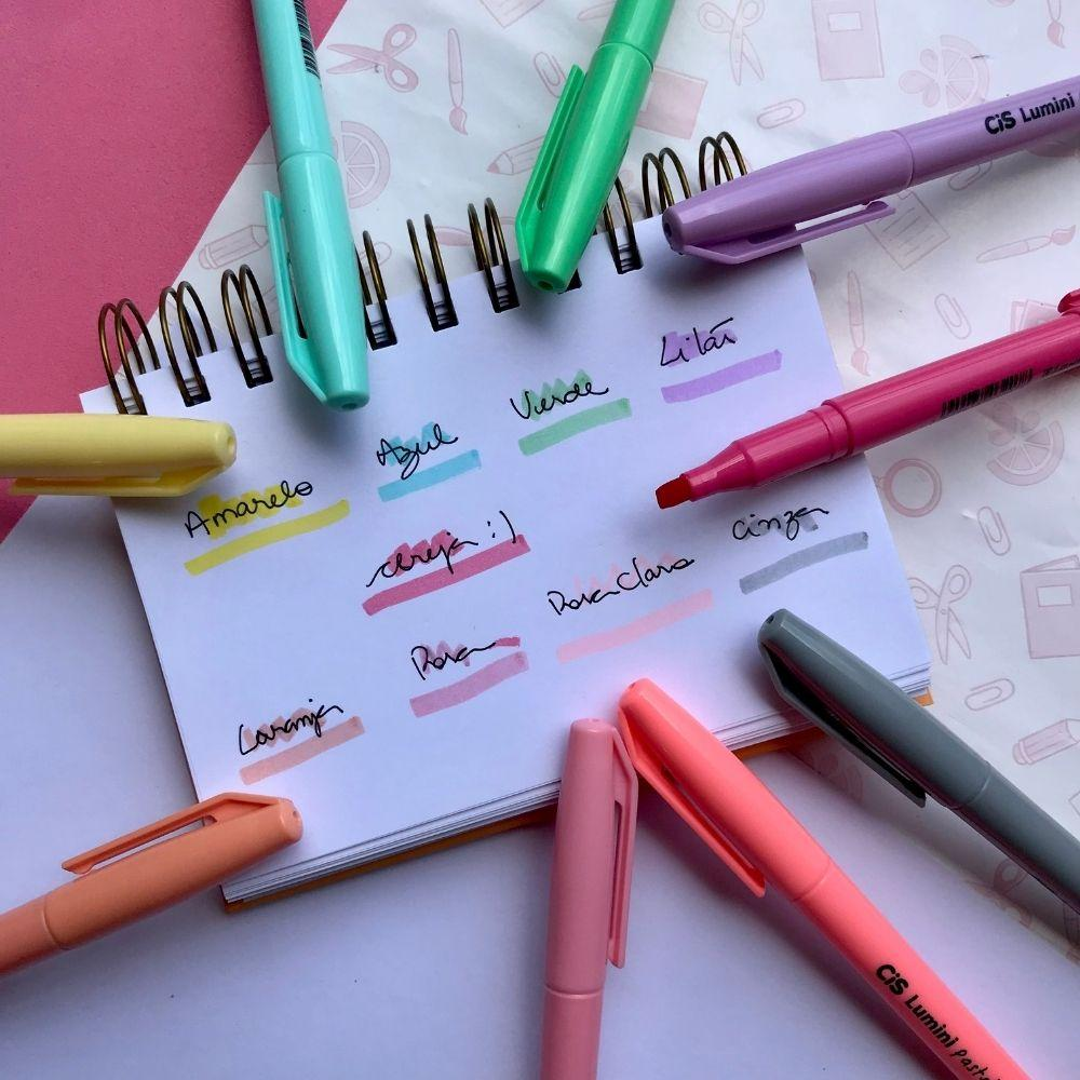 CiS Lumini
Lilás
Verde
Azul
Amarelo
cereja :)
cinza
Rosa Claro
Rosa
Laranja
CiS Lumini Paste